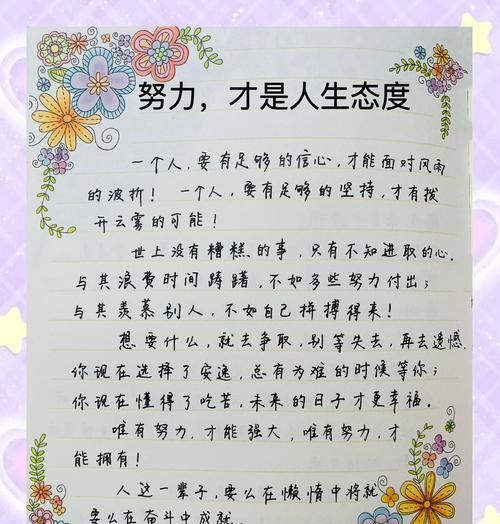 努力，才是人生态度
一个人，要有足够的信心，才能面对风雨
的波折！一个人，要有足够的坚持，才有拨
开云雾的可能！
世上没有糟糕的事，只有不知进取的心.
与其浪费时间踌躇，不如多些努力付出；
与其羡慕别人，不如自己拼搏得来！
想要什么，就去争取，别等失去，再去遗憾.
你现在选择了安逸，总有为难的时候等你；
你现在懂得了吃苦，未来的日子才更幸福.
唯有努力，才能强大，唯有努力，才
能拥有！
人这一辈子，要么在懒惰中将就
要么在奋斗中成就.